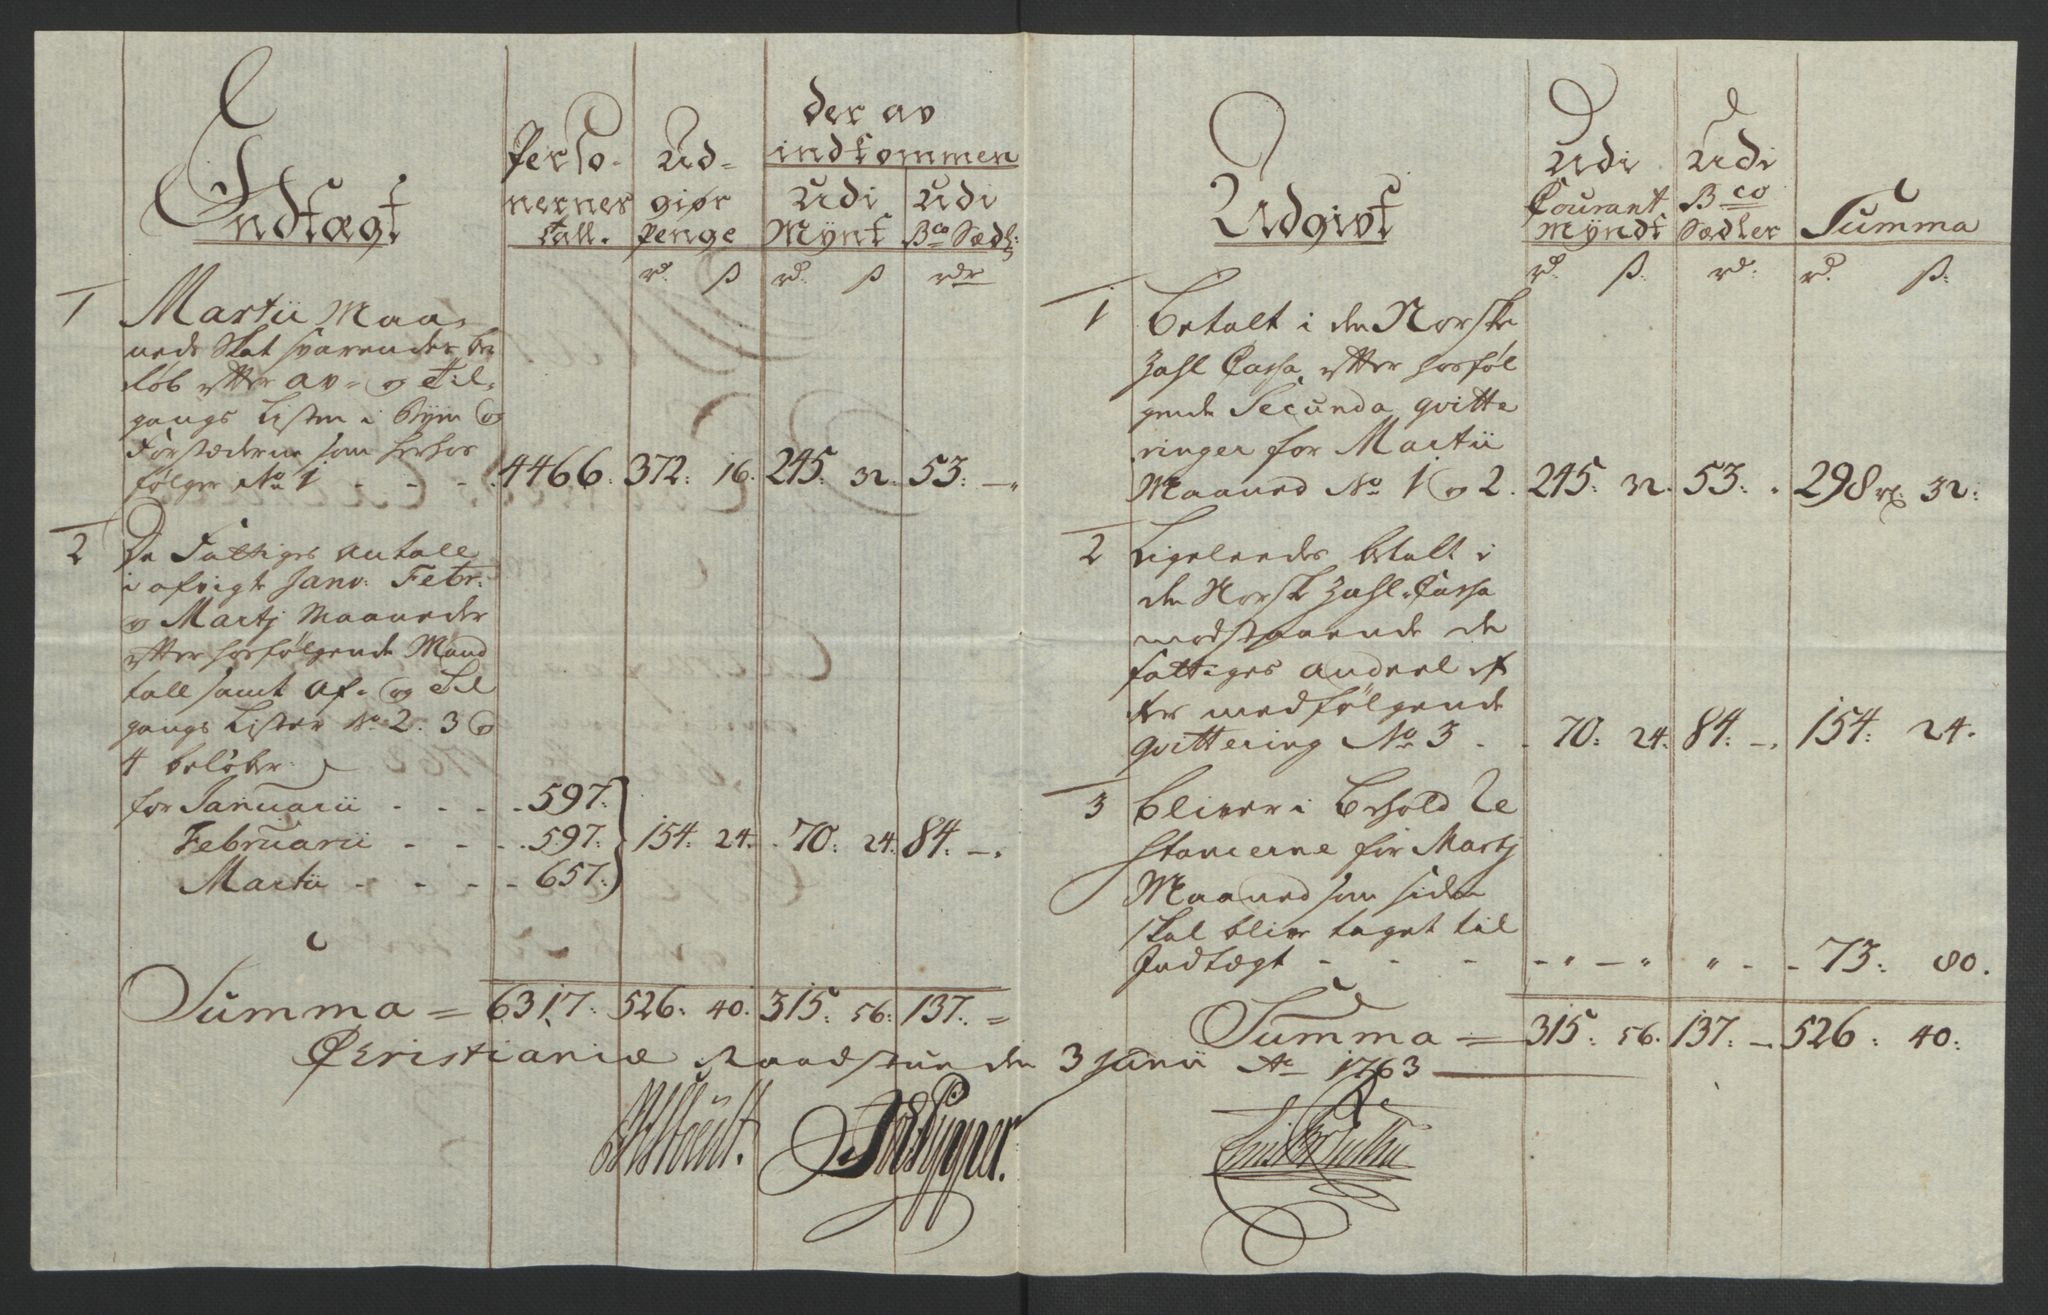 Indtægt
Perso-
nernes
tall.
Ud-
giør
penge
der av
indkommen
Udi
Mynt
Udi
Bco Sædl:
rd. ß rd. ß rdr
1 Martii Maa-
neds Skat svarendes be
løb efter av- og Til-
gangs Listen i Byen og
Forstæderne som herhos
følger No 1 - - - 4466. 372: 16. 245: 32. 53: —
2 De Fattiges Antall
i afvigte Janv: Febr:
og Martj Maaneder
efter hosfølgende Mand
tall samt Af- og Til
gangs Lister No 2. 3 og
4 beløber
for Januarii - - - - 597:
Februarii - - - - 597: 154: 24. - 70: 24. 84. —.
Martii - - - - 657:
Summa = 6317: 526: 40. 315: 56: 137. =
Udgivt
Udi
Courant
Myndt
Udi
Bco
Sædler
Summa
rd. ß. rd. rd. ß.
1 Betalt i den Norske
Zahl Cassa efter hosføl
gende Secunda qvitte
ringer for Martii
Maaned No 1 og 2. 245: 32. 53: 298 rd: 32:
2 Ligeleedes betalt i
den Norske Zahl-Cassa
modstaaende de
fattiges andeel ef
ter medfølgende
qvittering No 3 - - 70: 24. 84: —. 154: 24.
3 bliver i Behold Re
stancerne for Martj
Maaned som siden
skal blive taget til
Indtægt - - - - " — " " - - 73: 80.
Summa = 315: 56. 137. — 526: 40:
Christiania Raadstue den 3 Junii Ao 1763